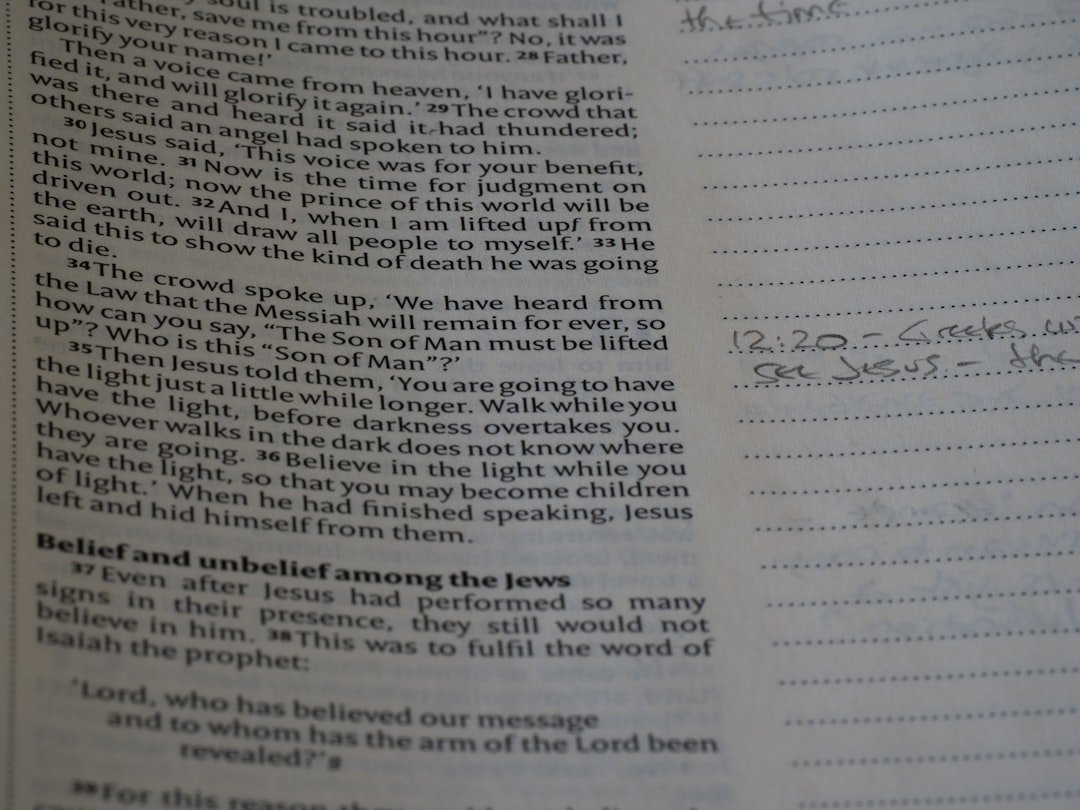 soul is troubled, and what shall I
ather, save me from this hour”? No, it was
for this very reason I came to this hour. 28 Father,
glorify your name!’
Then a voice came from heaven, ‘I have glori-
fied it, and will glorify it again.’ 29 The crowd that
was there and heard it said it had thundered;
others said an angel had spoken to him.
30 Jesus said, ‘This voice was for your benefit,
not mine. 31 Now is the time for judgment on
this world; now the prince of this world will be
driven out. 32 And I, when I am lifted up f from
the earth, will draw all people to myself.’ 33 He
said this to show the kind of death he was going
to die.
34 The crowd spoke up, ‘We have heard from
the Law that the Messiah will remain for ever, so
how can you say, “The Son of Man must be lifted
up”? Who is this “Son of Man”?’
35 Then Jesus told them, ‘You are going to have
the light just a little while longer. Walk while you
have the light, before darkness overtakes you.
Whoever walks in the dark does not know where
they are going. 36 Believe in the light while you
have the light, so that you may become children
of light.’ When he had finished speaking, Jesus
left and hid himself from them.
Belief and unbelief among the Jews
37 Even after Jesus had performed so many
signs in their presence, they still would not
believe in him. 38 This was to fulfil the word of
Isaiah the prophet:
‘Lord, who has believed our message
and to whom has the arm of the Lord been
revealed?’ g
39 For this reason they
the time
12:20 – Greeks
see Jesus – the